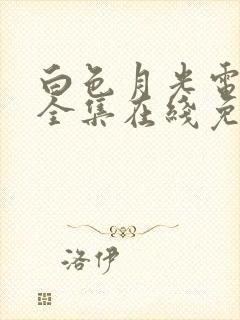 白色月光电
全集在线免
洛伊